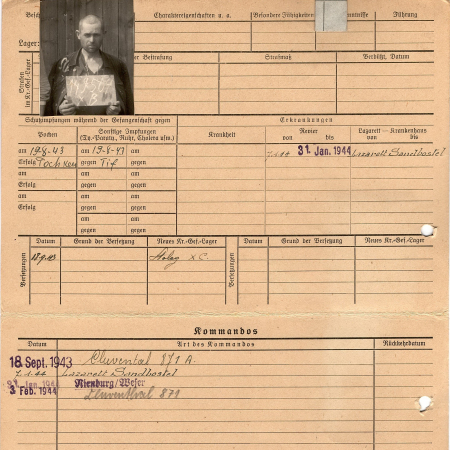 Besch
Charaktereigenschaften u. a.
Besondere Fähigkeiten
Kenntnisse
Führung
Lager:
Strafen im Kr.-Gef.-Lager
der Bestrafung
Strafmaß
Verbüßt, Datum
Schutzimpfungen während der Gefangenschaft gegen
Erkrankungen
Pocken
Sonstige Impfungen
(Ty.-Paraty., Ruhr, Cholera usw.)
Krankheit
Revier
von bis
Lazarett — Krankenhaus
von bis
am 19.8.43 am 19-8-43
7.1.44 31. Jan. 1944 Lazarett Sandbostel
Erfolg Pocken gegen Tif gegen
am am am
Erfolg gegen gegen
am am am
Erfolg gegen gegen
am am
gegen gegen
am am
gegen gegen
Versetzungen
Datum Grund der Versetzung Neues Kr.-Gef.-Lager
Versetzungen
Datum Grund der Versetzung Neues Kr.-Gef.-Lager
18.9.43 Stalag X C.
Kommandos
Datum Art des Kommandos Rückkehrdatum
18. Sept. 1943 Cluvental 871 A.
7.1.44 Lazarett Sandbostel
31. Jan. 1944 Nienburg/Weser
3. Feb. 1944 Cluventhal 871